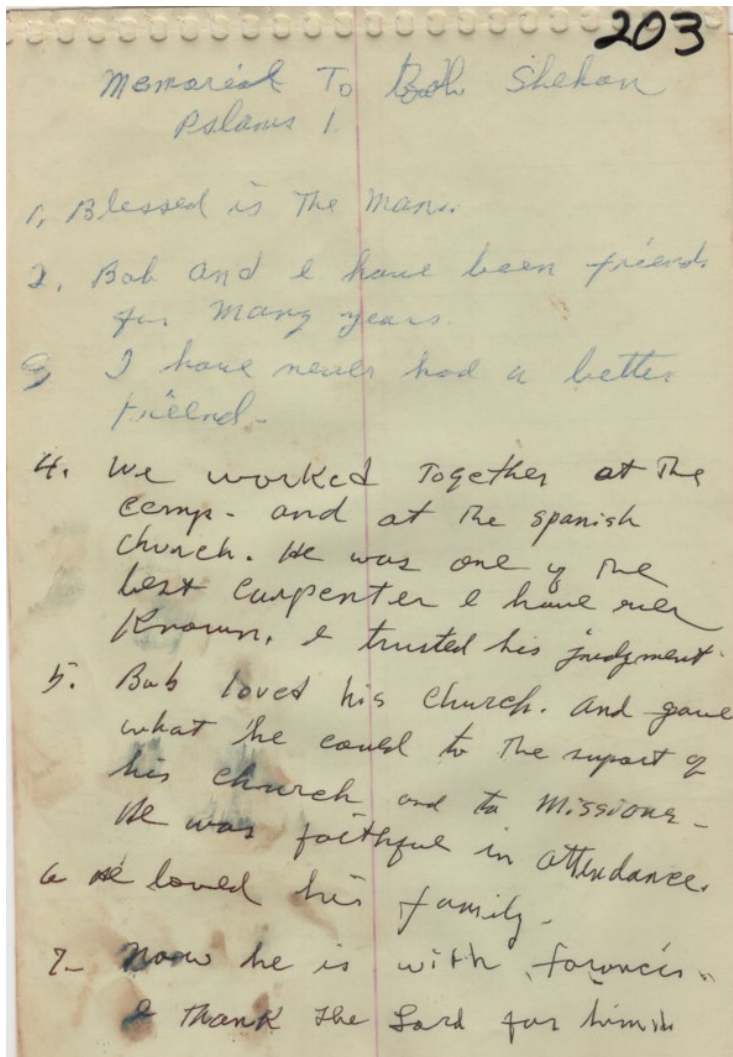 203
Memorial To Bob Shehan
Pslams 1.
1, Blessed is The man..
2, Bob and I have been friends
for many years.
3 I have never had a better
friend-
4. We worked Together at The
Camp- and at The spanish
Church. He was one of The
best Carpenter I have ever
Known. I trusted his judgment.
5. Bob loved his church. And gave
what he could to The suport of
his church and to Missions-
He was faithful in attendance.
6 He loved his family-
7- Now he is with
I Thank The Lord for him